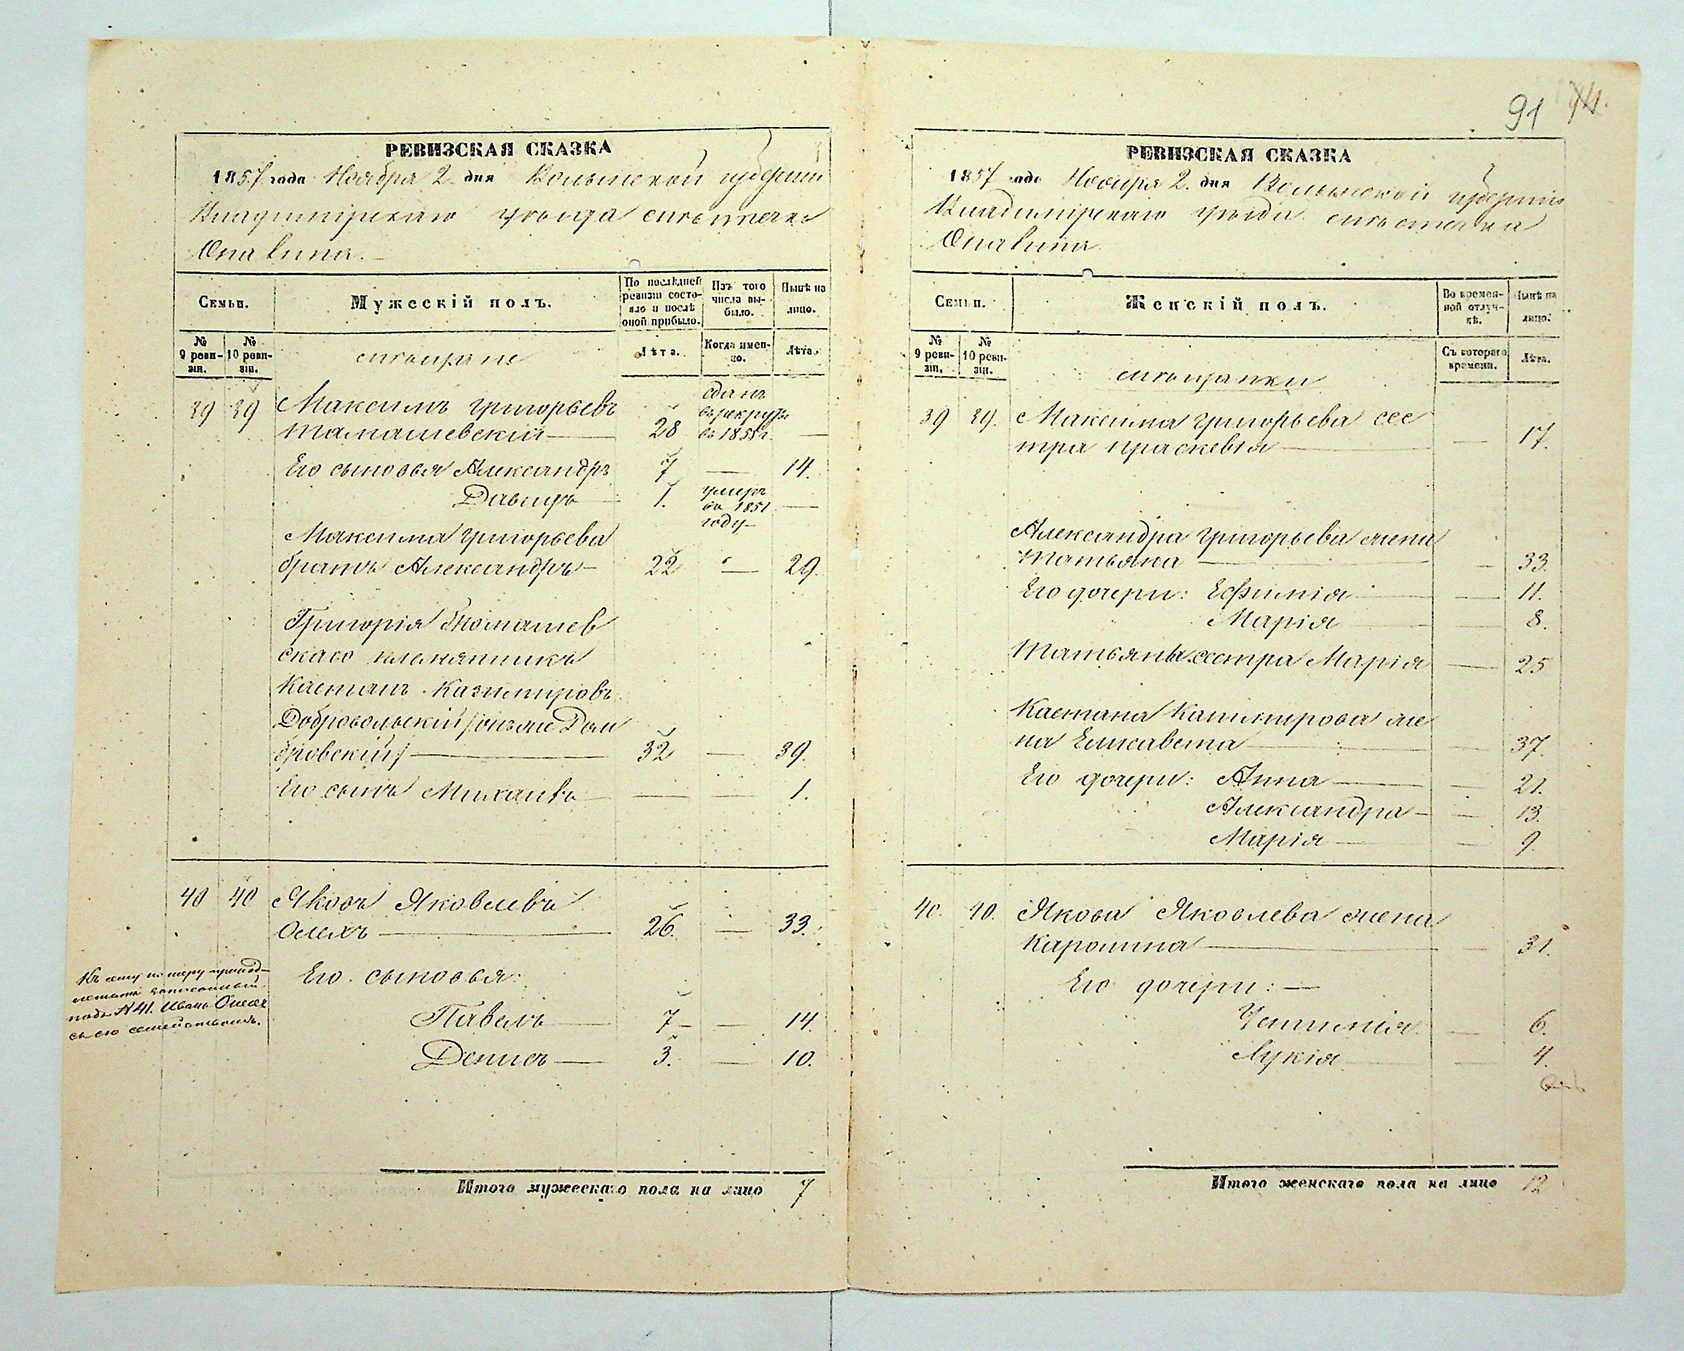 91
74.
РЕВИЗСКАЯ СКАЗКА
1857 года Ноября 2 дня Волынской губерніи
Владимірскаго уѣзда мѣстечка
Опалина.
Семьи.
Мужескій полъ.
По послѣдней ревизіи состояло и послѣ оной прибыло.
Изъ того числа выбыло.
Нынѣ на лицо.
№ 9 ревизіи.
№ 10 ревизіи.
мѣщане
Лѣта.
Когда именно.
Лѣта.
39 39 Максимъ Григорьевъ
Томашевскій — 28 сданъ въ рекруты въ 1855 г. —
Его сыновья Александръ 7 — 14.
Давидъ — 1. умеръ въ 1851 году —
Максима Григорьева
братъ Александръ — 22 — 29.
Григорія Томашев
скаго племянникъ
Каетанъ Казимировъ
Добровольскій (онъ же Дом
бровскій) — 32 — 39.
Его сынъ Михаилъ — — — 1.
40 40 Яковъ Яковлевъ
Олехъ — 26. — 33.
Къ сему номеру принад-
лежитъ записанный
подъ №41. Иванъ Олехъ
съ его семействомъ.
Его сыновья:
Павелъ — 7 — — 14.
Денисъ — 3. — 10.
Итого мужескаго пола на лицо 7
РЕВИЗСКАЯ СКАЗКА
1857 года Ноября 2. дня Волынской губерніи
Владимірскаго уѣзда мѣстечка
Опалина
Семьи.
Женскій полъ.
Во временной отлучкѣ.
Нынѣ на лицо.
№ 9 ревизіи.
№ 10 ревизіи.
мѣщанки
Съ котораго времени.
Лѣта.
39 39. Максима Григорьева сес
тра Праскевія — — 17.
Александра Григорьева жена
Татьяна — — 33.
Его дочери: Ефимія — — 11.
Марія — — 8.
Татьяны сестра Марія — 25
Каетана Казимирова же
на Елисавета — — 37.
Его дочери: Анна — — 21.
Александра — — 13.
Марія — — 9.
40. 40. Якова Яковлева жена
Каролина — — 31.
Его дочери: —
Устинія — 6.
Лукія — 4.
Итого женскаго пола на лицо 12